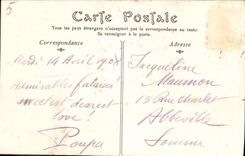 Carte Postale
Tous les pays étrangers n'acceptent pas la correspondance au recto.
Se renseigner à la poste.
Correspondance
Mardi 14 Avril 1908
Admirables falaises!
sweetest dearest
love!
Poupa
Adresse
Jacqueline
Maumon
15 Rue Charlet
Abbeville
Somme